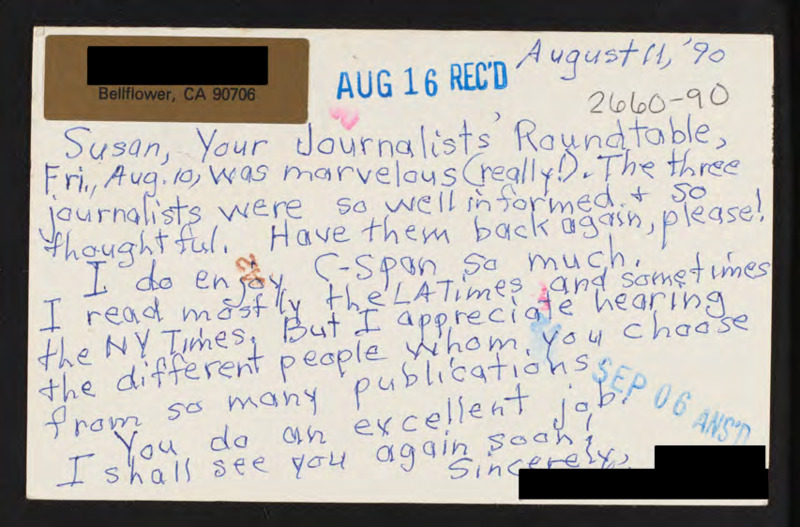 August 11, '90
AUG 16 REC'D
2660-90
Bellflower, CA 90706
Susan, Your Journalists' Roundtable,
Fri., Aug. 10, was marvelous (really!). The three
journalists were so well informed + so
thoughtful. Have them back again, please!
I do enjoy C-Span so much.
I read mostly the LA Times and sometimes
the NY Times. But I appreciate hearing
the different people whom you choose
from so many publications
SEP 06 ANS'D
You do an excellent job.
I shall see you again soon!
Sincerely,